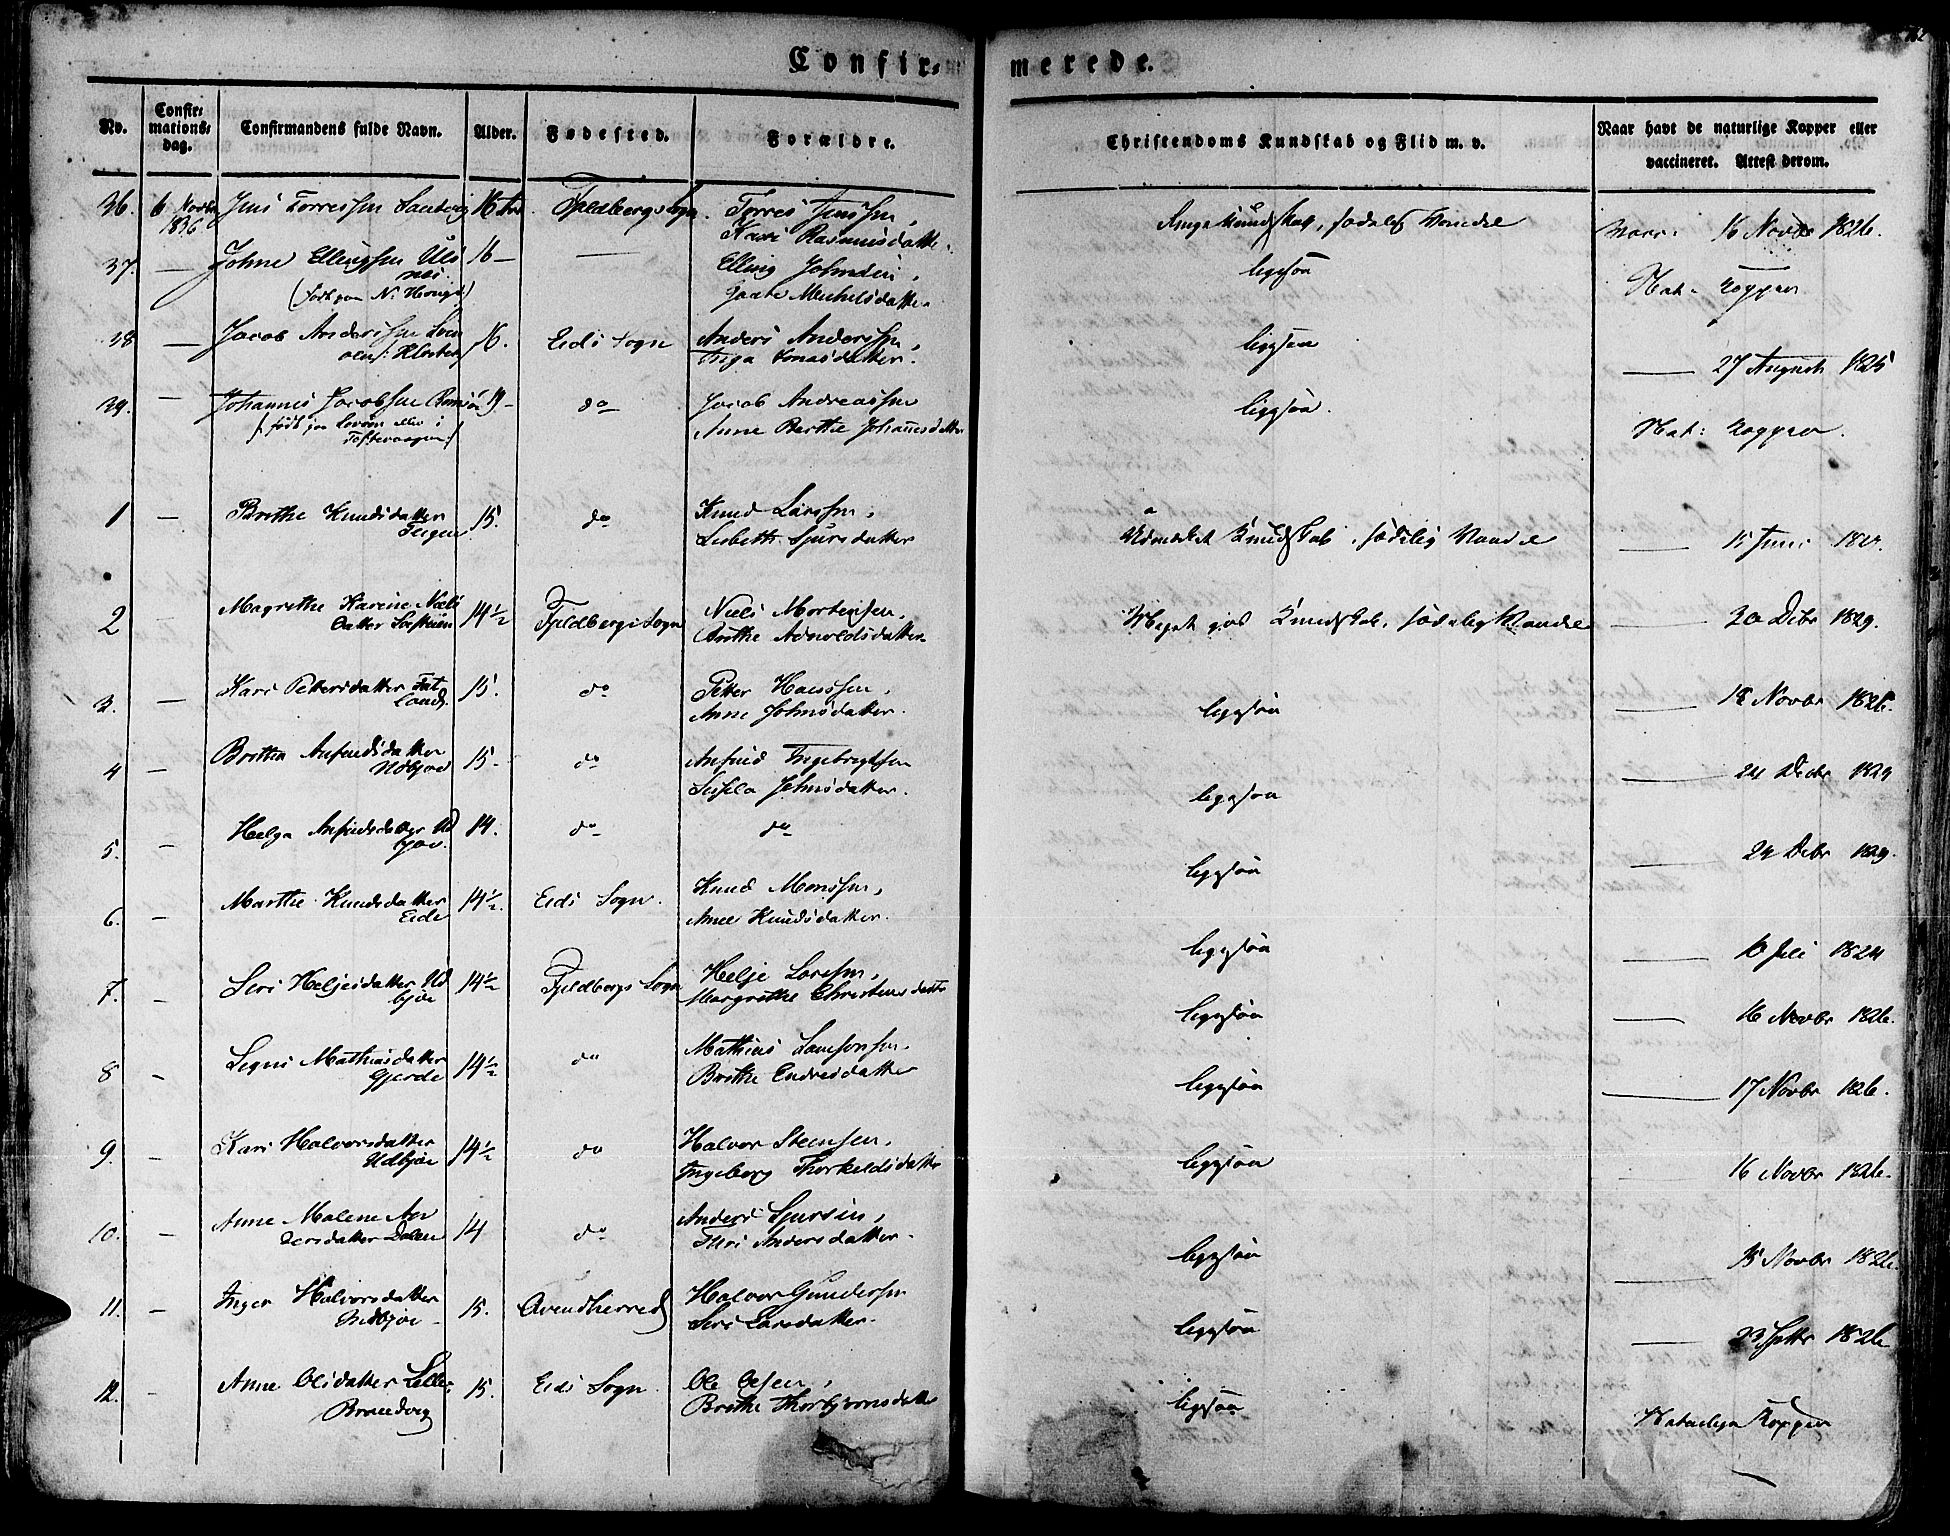 Confir- merede.
No. Confir- mations- dag. Confirmandens fulde Navn. Alder. Fødested. Forældre. Christendoms Kundskab og Flid m. v. Naar havt de naturlige Kopper eller vaccineret. Attest derom.
36. 6 Novbr 1836 Jens Torressen 16 Fjeldbergs Sogn. Torres Jenssen, Kari Rasmusdatter. Kundskab, sædelig Vandel Vacc: 16 Novbr 1826.
37. — Johne Ellingsen 16 — — Elling Johnsen, Michelsdatter ligesaa Nat: Kopper
38 — Jacob Anderssen 16. Eids Sogn Anders Anderssen, Inga Jonasdatter. ligesaa — 27 August 1825
39. — Johannes Jacobsen 19 — do Jacob Andreassen Anne Berthe Johannesdatter ligesaa. Nat: Kopper.
1 — Brithe Knudsdatter 15. do Knud Larssen, Lisbeth Sjursdatter Udmærket Kundskab, sædelig Vandel — 15 Juni
2 — Magrethe Karine Niels datter 14½ Fjeldbergs Sogn Niels Mortensen, Arnoldsdatter Meget god Kundskab, sædelig Vandel — 20 Debr 1829.
3. — Kari Pettersdatter Fat land. 15. do Petter Hanssen, Anne Johnsdatter. ligesaa — 18 Novbr 1826.
4 — Brithe Anfindsdatter Udbjoe 15 — do Anfind Ingebrigtsen Johnsdatter. ligesaa — 24 Debr 1829
5. — Helga Anfindsdatter Ud bjoe. 14. do do ligesaa — 24 Debr 1829.
6. — Marthe Knudsdatter Eide 14½. Eids Sogn. Knud Monssen, Anne Knudsdatter. ligesaa — 10 Juli 1824
7. — Siri Heljesdatter Ud bjoe 14½ Fjeldbergs Sogn Helje Larssen, Margrethe Christensdatter ligesaa — 16 Novbr 1826.
8 — Signi Mathiasdatter Gjerde 14½ do Mathias Samsonsen, Brithe Endresdatter ligesaa — 17 Novbr 1826.
9. — Kari Halvorsdatter Udbjoe 14½ do Halvor Steensen, Ingeborg Thorkeldsdatter ligesaa — 16 Novbr 1826.
10. — Anne Malene An dersdatter Dalen 14 do Anders Sjursen, Siri Andersdatter. ligesaa — 15 Novbr 1826.
11. — Inger Halvorsdatter Udbjoe 15. Qvindherred Halvor Gundersen Siri Larsdatter. ligesaa — 23 Septbr 1826
12. — Anne Olsdatter Lille Brandvig 15. Eids Sogn. Ole Olsen, Brithe Thorbjørnsdatter ligesaa Naturlige Kopper